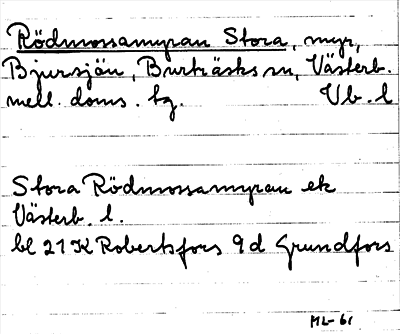 Rödmossamyran Stora, myr,
Bjursjön, Burträsks sn, Västerb.
mell. doms. tg. Vb. l
Stora Rödmossamyran ek
Västerb. l.
bl 21K Robertsfors 9d Grundfors
ML-61